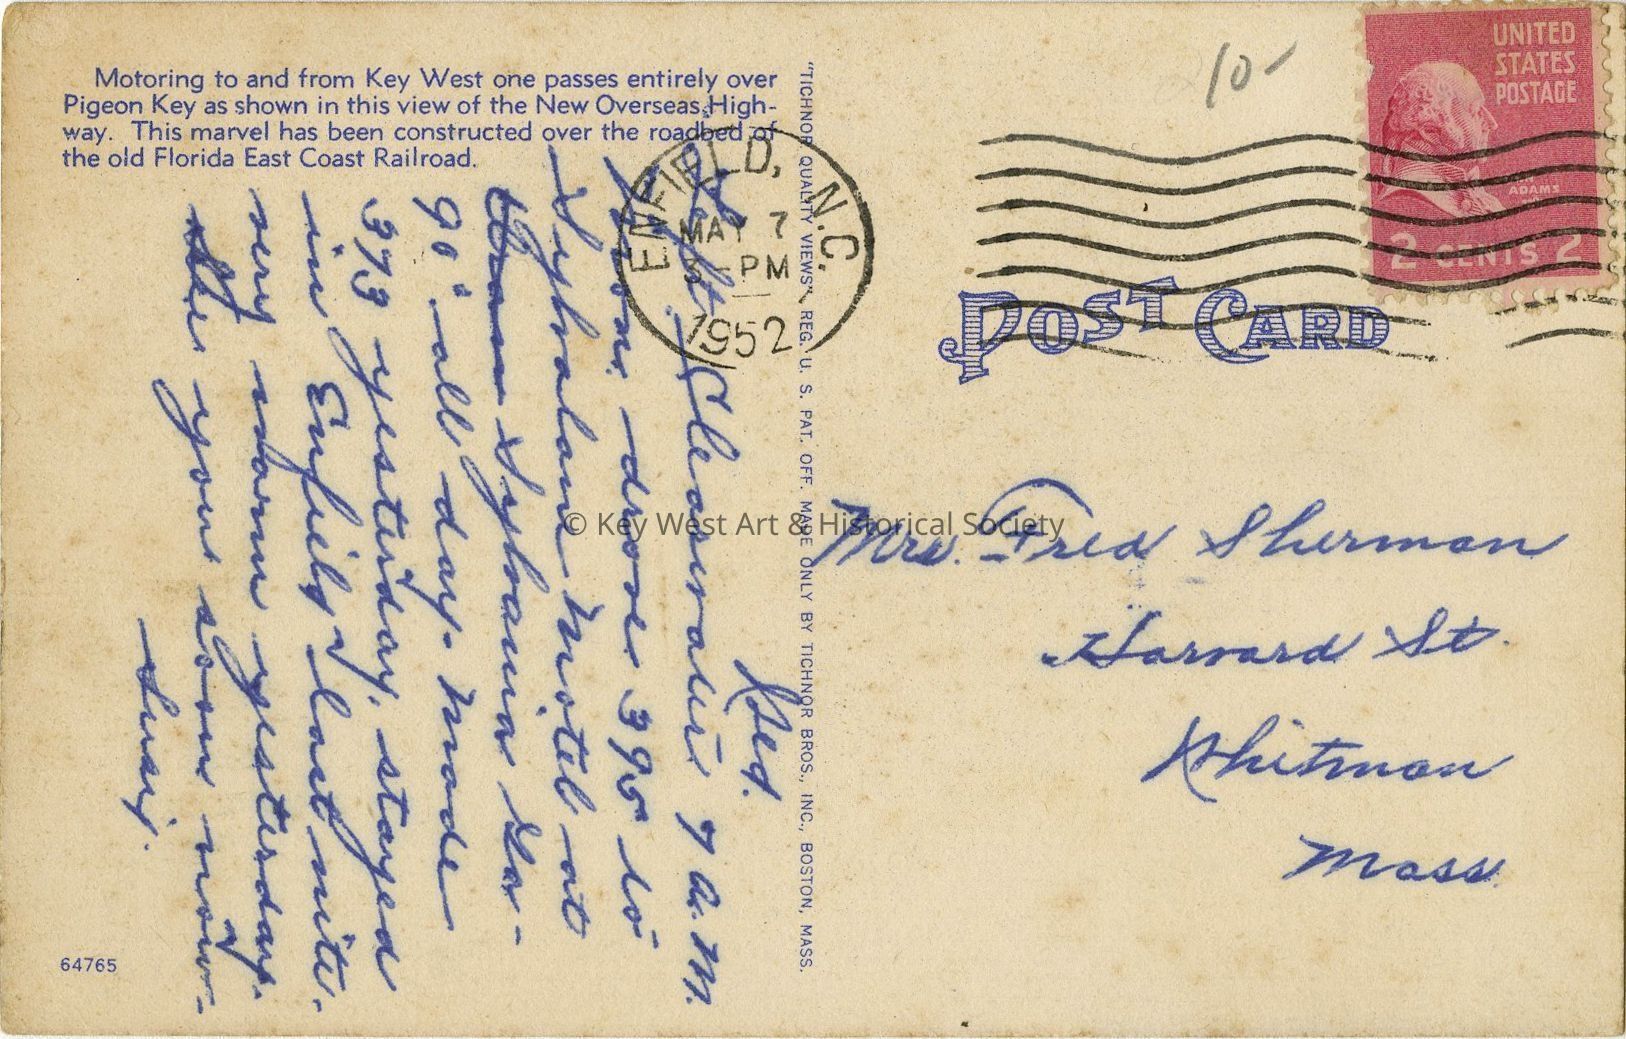 Motoring to and from Key West one passes entirely over
Pigeon Key as shown in this view of the New Overseas High-
way. This marvel has been constructed over the roadbed of
the old Florida East Coast Railroad.
Wed.
Left Clearwater 7 A.M.
Mon. drove 395 to
Sylvania Motel at
Sylvania Ga-
90° all day. Made
373 yesterday, stayed
in Enfield last nite.
very warm yesterday.
See you soon now-
64765
"TICHNOR QUALITY VIEWS", REG. U. S. PAT. OFF. MADE ONLY BY TICHNOR BROS., INC., BOSTON, MASS.
ENFIELD, N.C.
MAY 7
PM
1952
10-
UNITED
STATES
POSTAGE
ADAMS
2 CENTS 2
POST CARD
Mrs. Fred Sherman
Harvard St.
Whitman
Mass.
© Key West Art & Historical Society